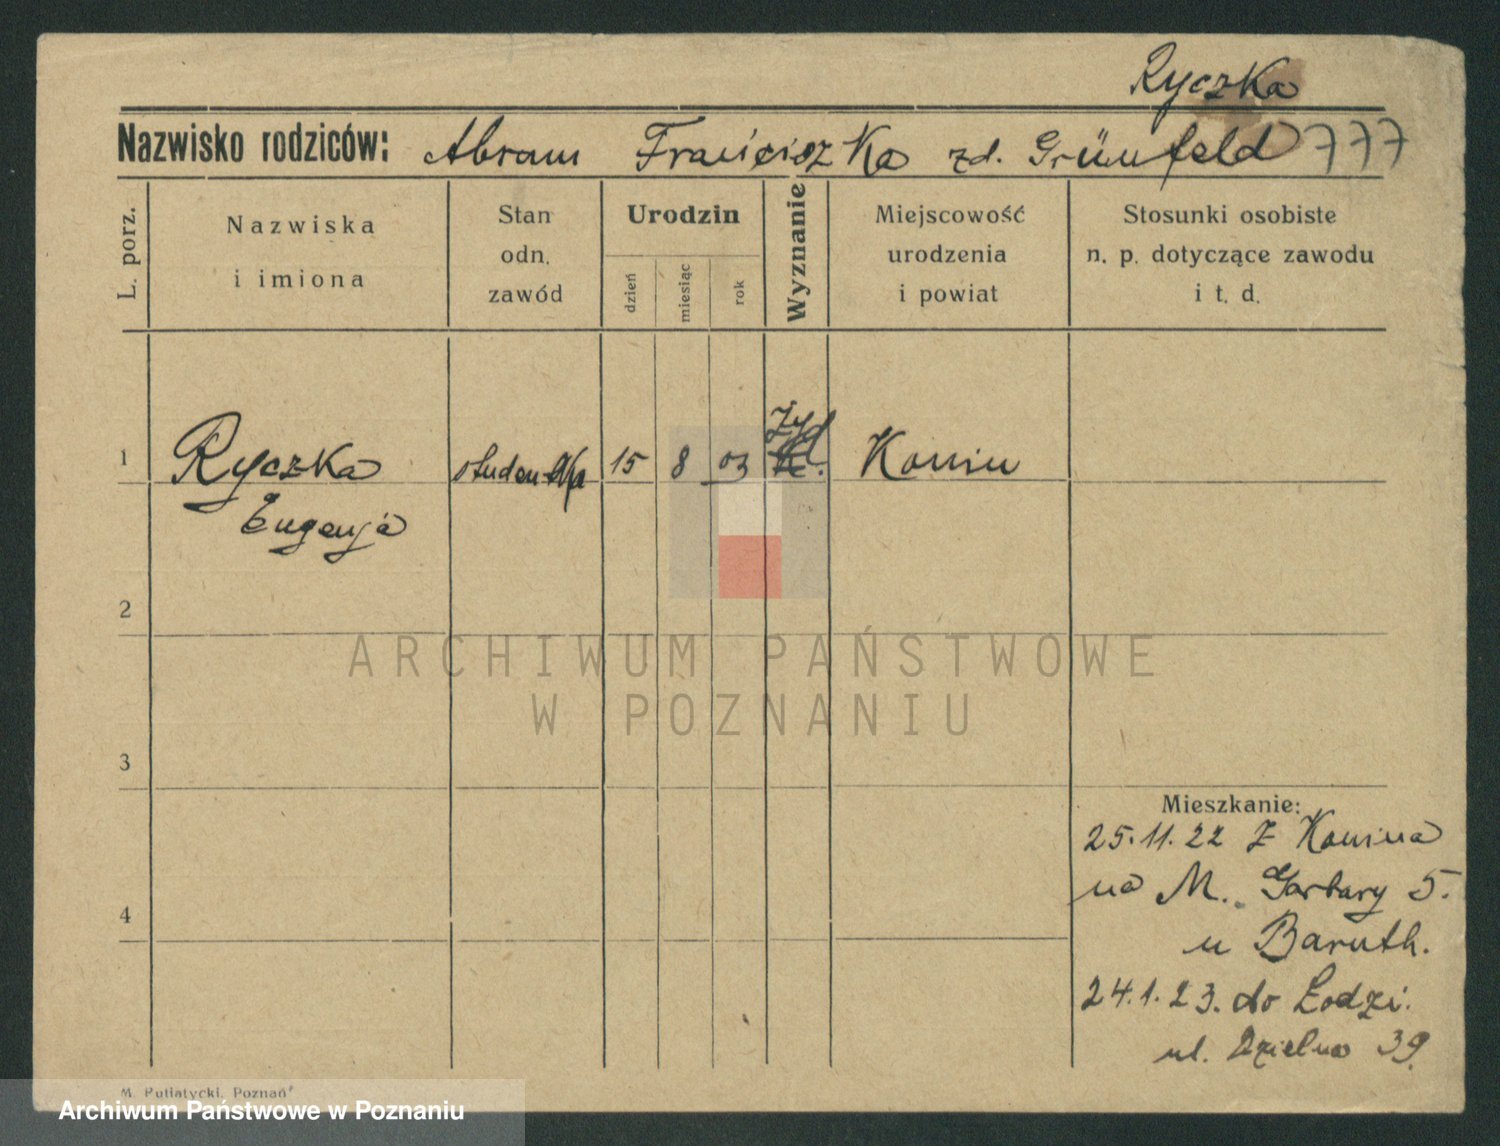 Ryczka
Nazwisko rodziców: Abram Franciszka zd. Grünfeld 777
L. porz.
Nazwiska
i imiona
Stan
odn.
zawód
Urodzin
dzień
miesiąc
rok
Wyznanie
Miejscowość
urodzenia
i powiat
Stosunki osobiste
n. p. dotyczące zawodu
i t. d.
Żyd
1 Ryczka studentka 15 8 03 Konin
Eugenja
2
ARCHIWUM PAŃSTWOWE
W POZNANIU
3
Mieszkanie:
25.11.22 Z Konina
na M. Garbary 5.
4
u Baruth.
24.1.23. do Łodzi.
ul. Dzielna 39
M. Putiatycki, Poznań
Archiwum Państwowe w Poznaniu